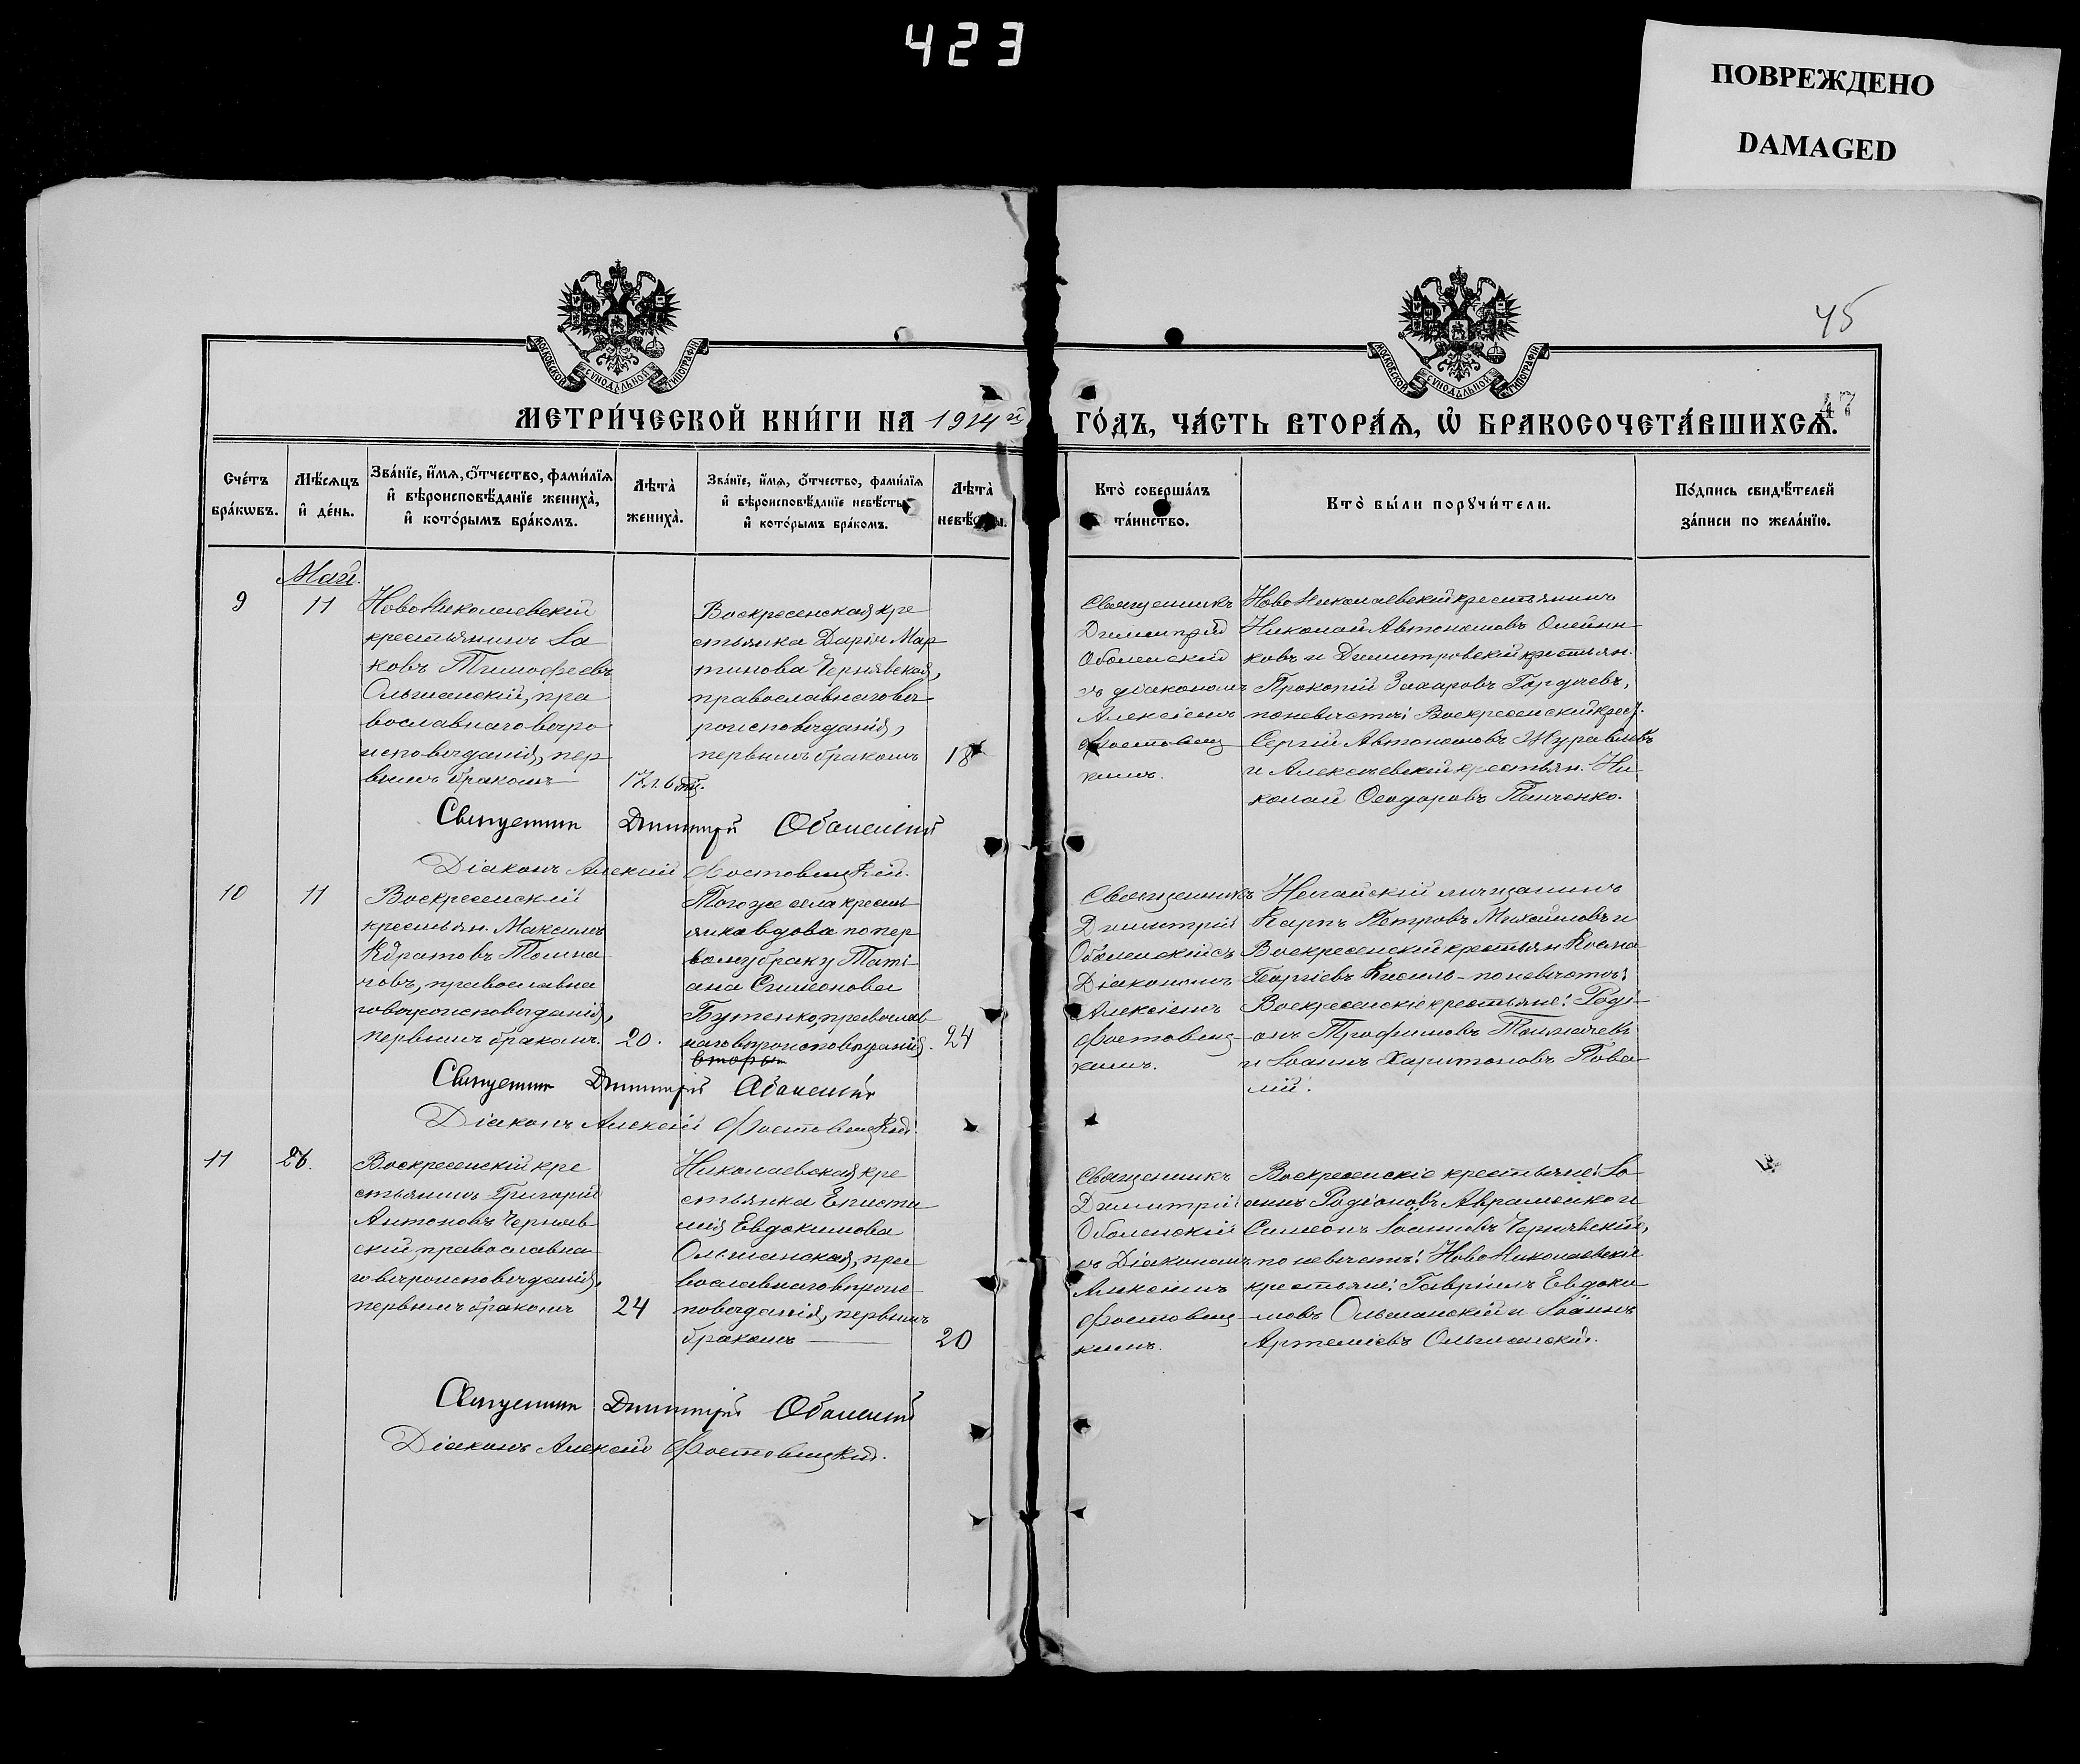 423
ПОВРЕЖДЕНО
DAMAGED
45
47
МОСКОВСКОЙ СѴНОДАЛЬНОЙ ТИПОГРАФІИ
МОСКОВСКОЙ СѴНОДАЛЬНОЙ ТИПОГРАФІИ
МЕТРИ́ЧЕСКОЙ КНИ́ГИ НА 1914й ГО́ДЪ, ЧА́СТЬ ВТОРА́Ѧ, Ѡ҆ БРАКОСОЧЕТА́ВШИХСѦ.
Сче́тъ
бра́кѡвъ.
Мѣ́сѧцъ
и҆ де́нь.
Зва́нїе, и҆́мѧ, ѻ҆́тчество, фами́лїѧ
и҆ вѣроисповѣ́данїе жениха̀,
и҆ кото́рымъ бра́комъ.
Лѣта̀
жениха̀.
Зва́нїе, и҆́мѧ, ѻ҆́тчество, фами́лїѧ
и҆ вѣроисповѣ́данїе невѣ́сты,
и҆ кото́рымъ бра́комъ.
Лѣта̀
невѣ́сты.
Кто̀ соверша́лъ
та́инство.
Кто̀ бы́ли порꙋчи́тели.
По́дпись свидѣ́телей
за́писи по жела́нїю.
Май.
9
11
НовоНиколаевскій
крестьянинъ Іа
ковъ Тимофеевъ
Ольшанскій, пра
вославнаго вѣро
исповѣданія, пер
вымъ бракомъ
17 л. 6 м.
Воскресенская кре
стьянка Дарія Мар
тинова Чернявская,
православнаго вѣ
роисповѣданія,
первымъ бракомъ
18
Священникъ
Димитрій
Оболенскій
съ діакономъ
Алексіемъ
Фостовец
кимъ.
НовоНиколаевскій крестьянинъ
Николай Автономовъ Олейни
ковъ и Димитровскій крестьян.
Прокопій Захаровъ Гордѣевъ,
по невѣстѣ: Воскресенскій крест.
Сергій Автономовъ Журавлевъ
и Алексѣевскій крестьян. Ни
колай Ѳеодоровъ Панченко.
Священник Димитрій Оболенскій
Діаконъ Алексій Фостовецкій.
10
11
Воскресенскій
крестьян. Максимъ
Кдратовъ Толма
човъ, православна
го вѣроисповѣданія,
первымъ бракомъ.
20.
Тогоже села кресть
янка вдова по пер
вому браку Таті
ана Симеонова
Бутенко, православ
наго вѣроисповѣданія.
вторым
24
Священникъ
Димитрій
Оболенскій съ
Діакономъ
Алексіемъ
Фостовец
кимъ.
Ногайскій мѣщанинъ
Карпъ Петровъ Михайловъ и
Воскресенскій крестьян Косма
Георгіевъ Кисиль - по невѣстѣ:
Воскресенскіе крестьяне: Роді
онъ Трофимовъ Толмачевъ
и Іоаннъ Харитоновъ Кова
лій.
Священник Димитрій Оболенскій
Діаконъ Алексій Фостовецкій.
11
26.
Воскресенскій кре
стьянинъ Григорій
Антоновъ Черняв
скій, православна
го вѣроисповѣданія,
первымъ бракомъ
24
Николаевская кре
стьянка Еписти
мія Евдокимова
Ольшанская, пра
вославнаго вѣроис
повѣданія, первымъ
бракомъ
20
Священникъ
Димитрій
Оболенскій
съ Діакономъ
Алексіемъ
Фостовец
кимъ.
Воскресенскіе крестьяне: Іо
аннъ Родіоновъ Авраменко и
Симеонъ Іоанновъ Чернявскій,
по невѣстѣ: НовоНиколаевскіе
крестьяне: Гавріилъ Евдоки
мовъ Ольшанскій и Іоаннъ
Артеміевъ Ольшанскій.
Священник Димитрій Оболенскій
Діаконъ Алексій Фостовецкій.